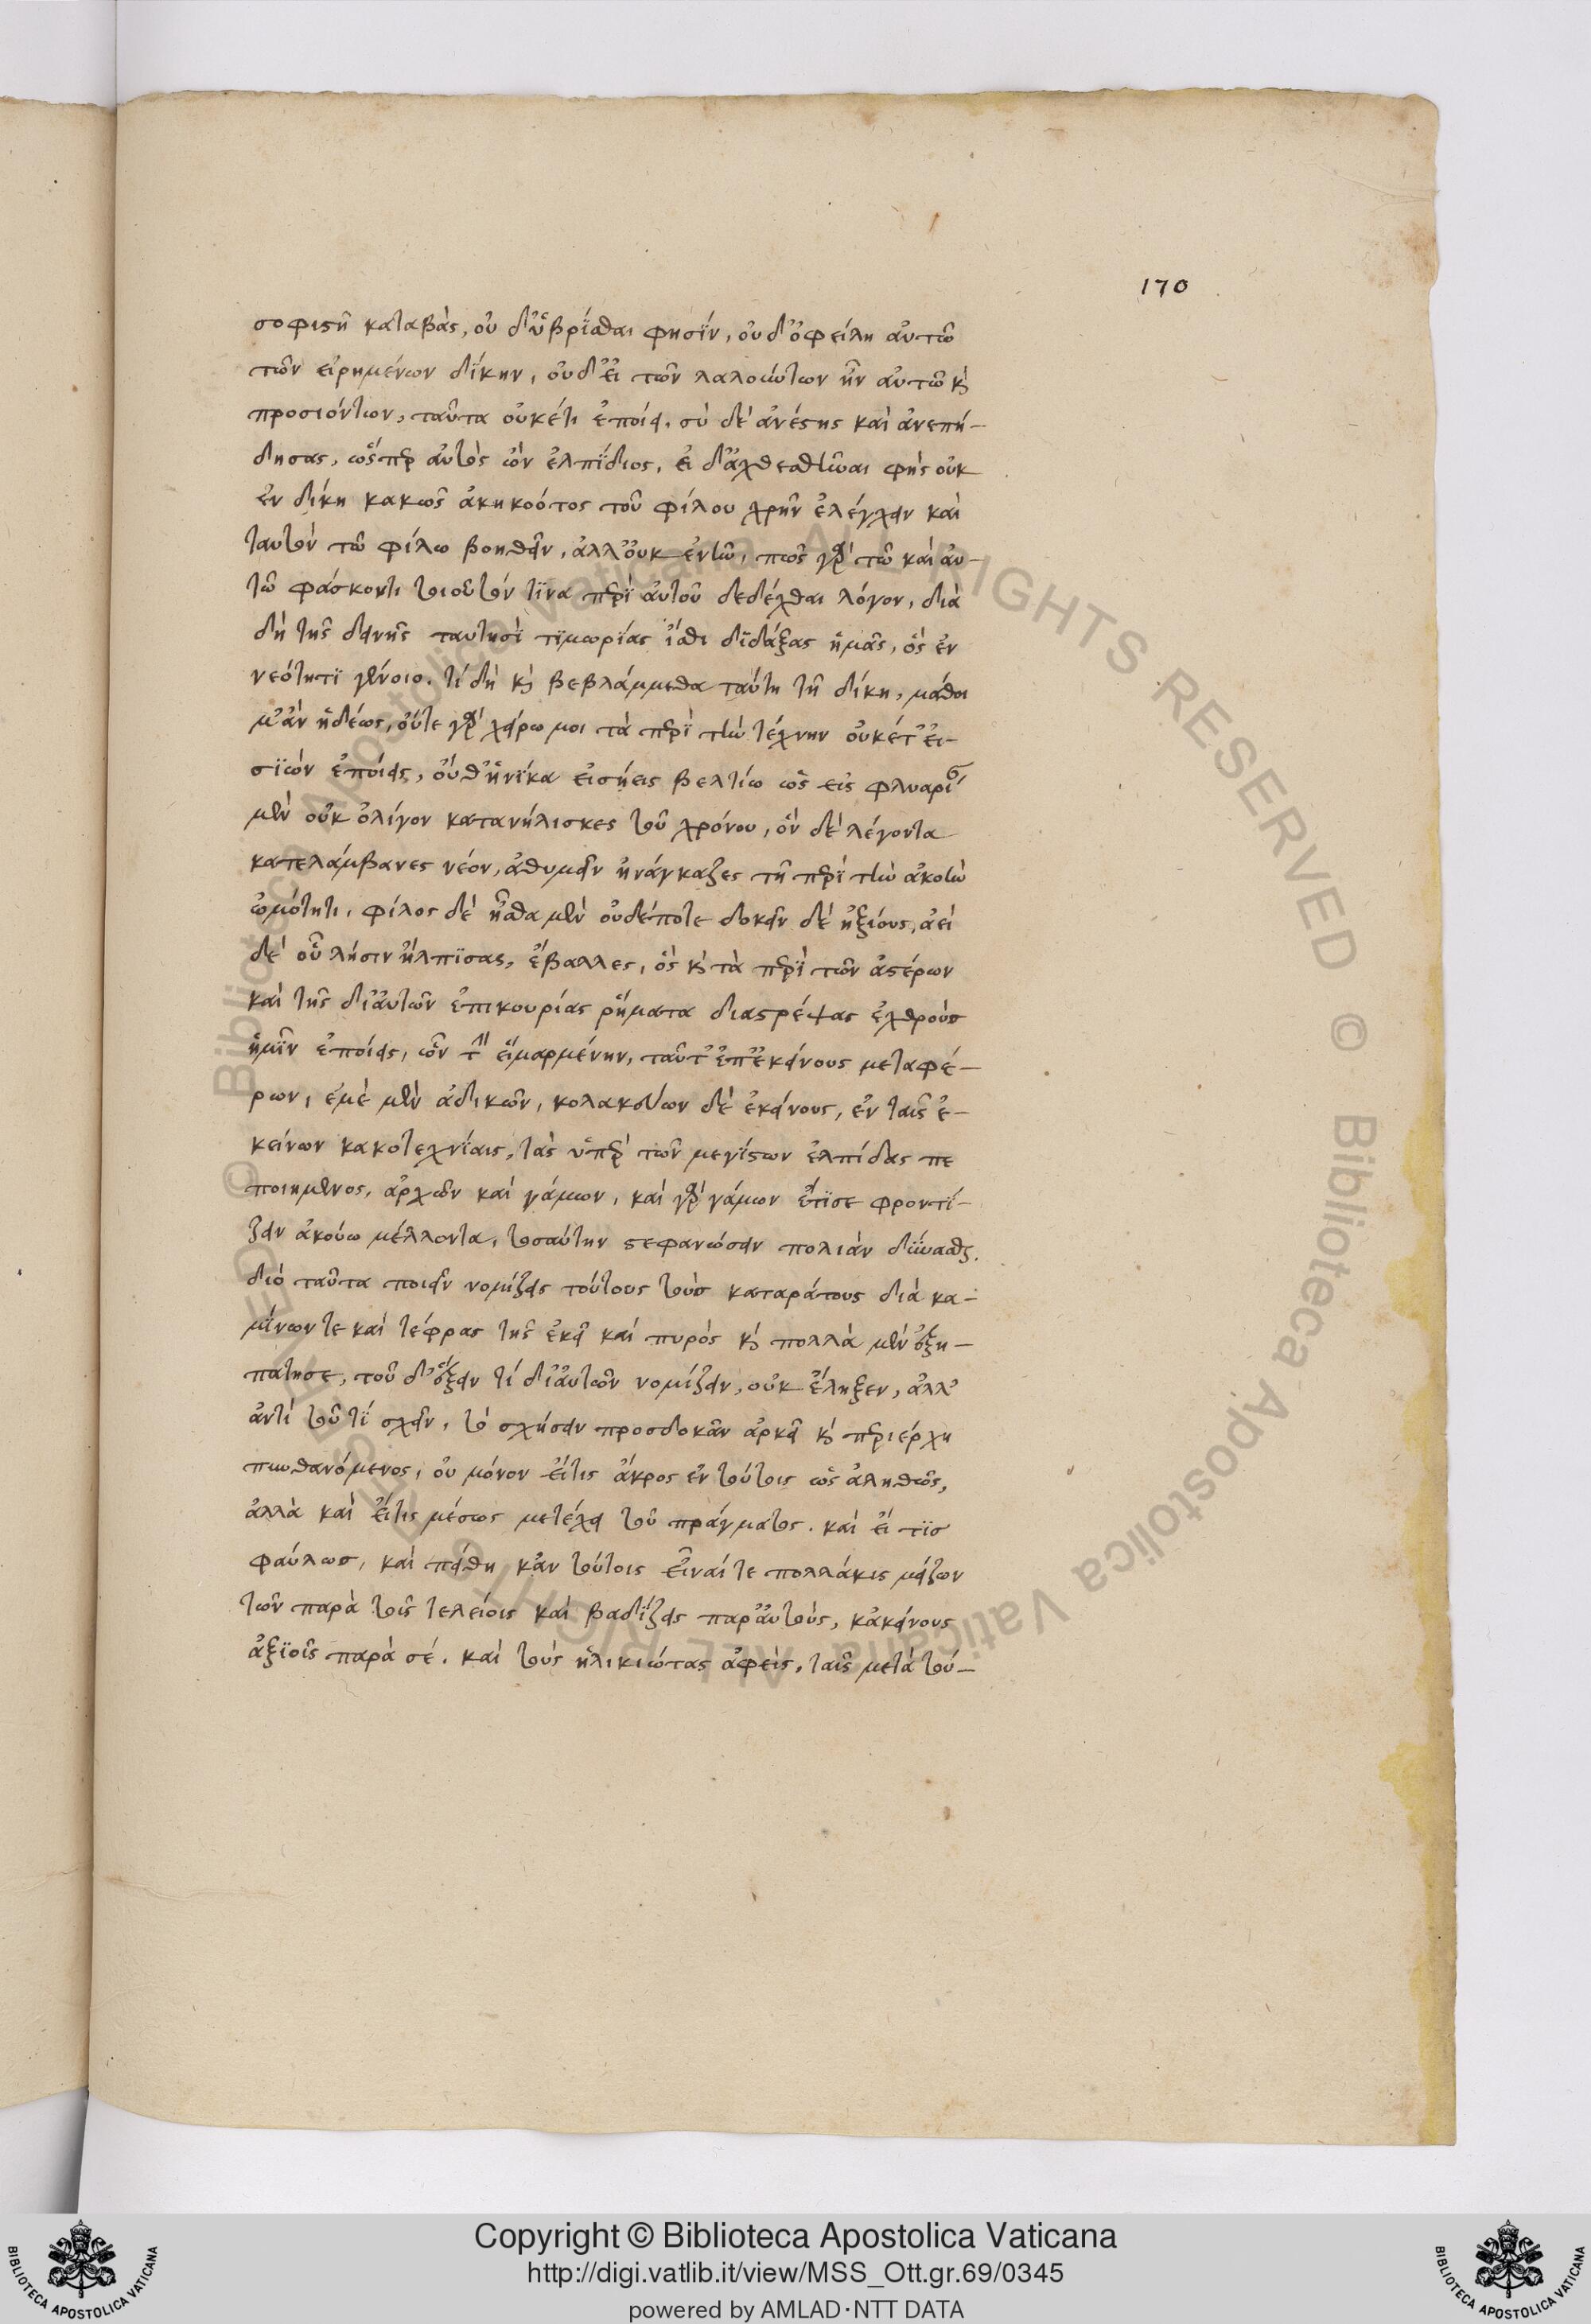 170
σοφιστῆ καταβὰς, οὐ δ' ὑβρίσθαι φησὶν, οὐδ' ὀφείλη αὐτῶ
τῶν εἰρημένων δίκην, οὐδ' εἰ τῶν λαλούντων ἦν αὐτῶ καὶ
προσιόντων, ταῦτα οὐκέτι ἐποίει. σὺ δὲ ἀνέστης καὶ ἀνεπή-
δησας, ὥσπερ αὐτὸς ὢν ἐλπίδιος, εἰ δ' ἄχθεσθῆναι φὴς οὐκ
ἐν δίκη κακῶς ἀκηκοότος τοῦ φίλου χρῆν ἐλέγχειν καὶ
ταυτὸν τῶ φίλω βοηθεῖν, ἀλλ' οὐκ ἐνῆν, πῶς γὰρ τῶ καὶ αὐ-
τῶ φάσκοντι τοιοῦτόν τινα περὶ αὐτοῦ δεδέχθαι λόγον, διὰ
δὴ τῆς δεινῆς ταυτησὶ τιμωρίας ἴσθι διδάξας ἡμᾶς, ὃς ἐν
νεότητι γένοιο. τί δὴ καὶ βεβλάμμεθα ταύτη τῆ δίκη, μάθοι
μ' ἂν ἡδέως, οὔτε γὰρ χείρω μοι τὰ περὶ τὴν τέχνην οὐκέτ' εἰ-
σιὼν ἐποίεις, οὔθ' ἡνίκα εἰσήεις βελτίω ὡς εἰς φλυαρίας
μὲν οὐκ ὀλίγον κατανήλισκες τοῦ χρόνου, ὃν δὲ λέγοντα
κατελάμβανες νέον, ἀθυμεῖν ἠνάγκαζες τῆ περὶ τὴν ἀκοὴν
ὠμότητι, φίλος δὲ ἦσθα μὲν οὐδέποτε δοκεῖν δὲ ἠξίους, ἀεὶ
δὲ οὗ λήσιν ἤλπισας, ἔβαλλες, ὃς καὶ τὰ περὶ τῶν ἀστέρων
καὶ τῆς δι' αὐτῶν ἐπικουρίας ῥήματα διαστρέψας ἐχθροὺς
ἡμῖν ἐποίεις, ὧν τὴν εἱμαρμένην, ταῦτ' ἐπ' ἐκείνους μεταφέ-
ρων, ἐμὲ μὲν ἀδικῶν, κολακεύων δὲ ἐκείνους, ἐν ταῖς ἐ-
κείνων κακοτεχνίαις, τὰς ὑπὲρ τῶν μεγίστων ἐλπίδας πε
ποιημένος, ἀρχῶν καὶ γάμων, καὶ γὰρ γάμων ἔτι σε φροντί-
ζειν ἀκούω μέλλοντα, τοσαύτην στεφανώσειν πολιὰν δύνασθαι.
διὸ ταῦτα ποιεῖν νομίζεις τούτους τοὺς καταράτους διὰ κα-
μίνων τε καὶ τέφρας τῆς ἐκεῖ καὶ πυρὸς καὶ πολλὰ μὲν ἐξη-
πάτησε, τοῦ δ' ἕξειν τί δι' αὐτῶν νομίζειν, οὐκ ἔληξεν, ἀλλ'
ἀντὶ τοῦ τί σχεῖν, τὸ σχήσειν προσδοκᾶν ἀρκεῖ καὶ περιέρχη
πυνθανόμενος, οὐ μόνον εἴ τις ἄκρος ἐν τούτοις ὡς ἀληθῶς,
ἀλλὰ καὶ εἴ τις μέσως μετέχει τοῦ πράγματος. καὶ εἴ τις
φαύλως, καὶ πείθη κἂν τούτοις εἶναί τε πολλάκις μείζων
τῶν παρὰ τοῖς τελείοις καὶ βαδίζεις παρ' αὐτοὺς, κἀκείνους
ἀξιοῖς παρὰ σέ. καὶ τοὺς ἡλικιώτας ἀφεὶς, ταῖς μετὰ τού-
© Biblioteca Apostolica Vaticana ALL RIGHTS RESERVED
Copyright © Biblioteca Apostolica Vaticana
http://digi.vatlib.it/view/MSS_Ott.gr.69/0345
powered by AMLAD·NTT DATA
BIBLIOTECA APOSTOLICA VATICANA
BIBLIOTECA APOSTOLICA VATICANA